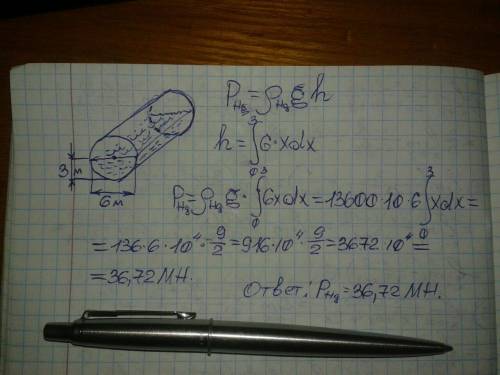 P_Hg = ρ_Hg g h
3 м
6 м
h = ∫₀³ 6·xdx
P_Hg = ρ_Hg g · ∫₀³ 6xdx = 13600·10·6 ∫₀³ xdx =
= 136·6·10⁴ · 9/2 = 916·10⁴ · 9/2 = 3672·10⁴ =
= 36,72 МН.
Ответ: P_Hg = 36,72 МН.